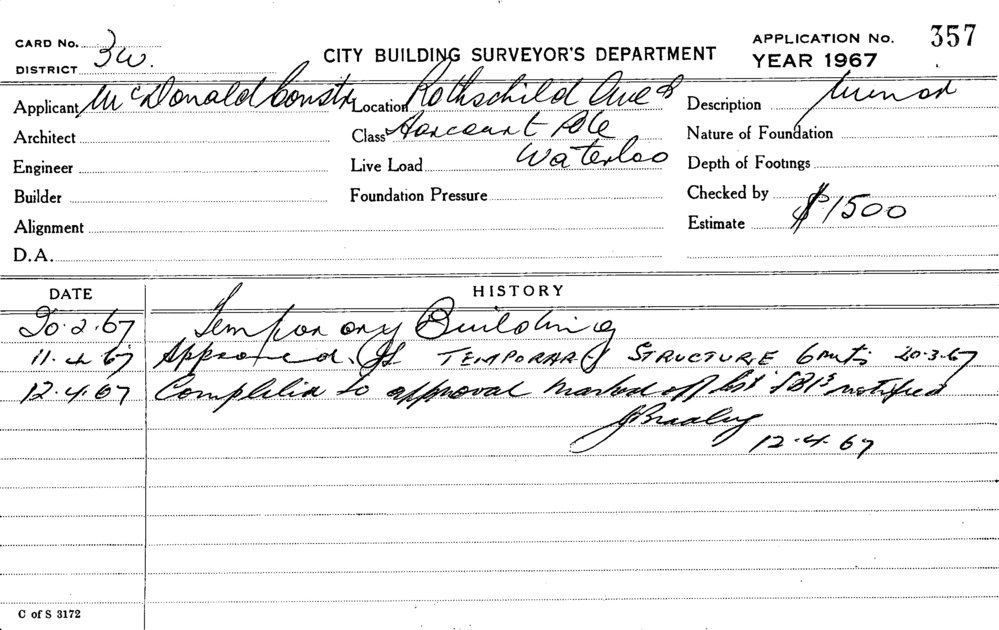 CARD No. CITY BUILDING SURVEYOR'S DEPARTMENT APPLICATION No. 357
DISTRICT 3W. YEAR 1967
Applicant McDonald Constr Location Rothschild Ave & Description Minor
Architect Class Harcourt Pde Nature of Foundation
Engineer Live Load Waterloo Depth of Footings
Builder Foundation Pressure Checked by
Alignment Estimate $1500
D.A.
DATE HISTORY
20.2.67 Temporary Building
11.4.67 Approved TEMPORARY STRUCTURE 6 mts 20.3.67
12.4.67 Completed to approval marked off list notified
J Bradley
12.4.67
C of S 3172